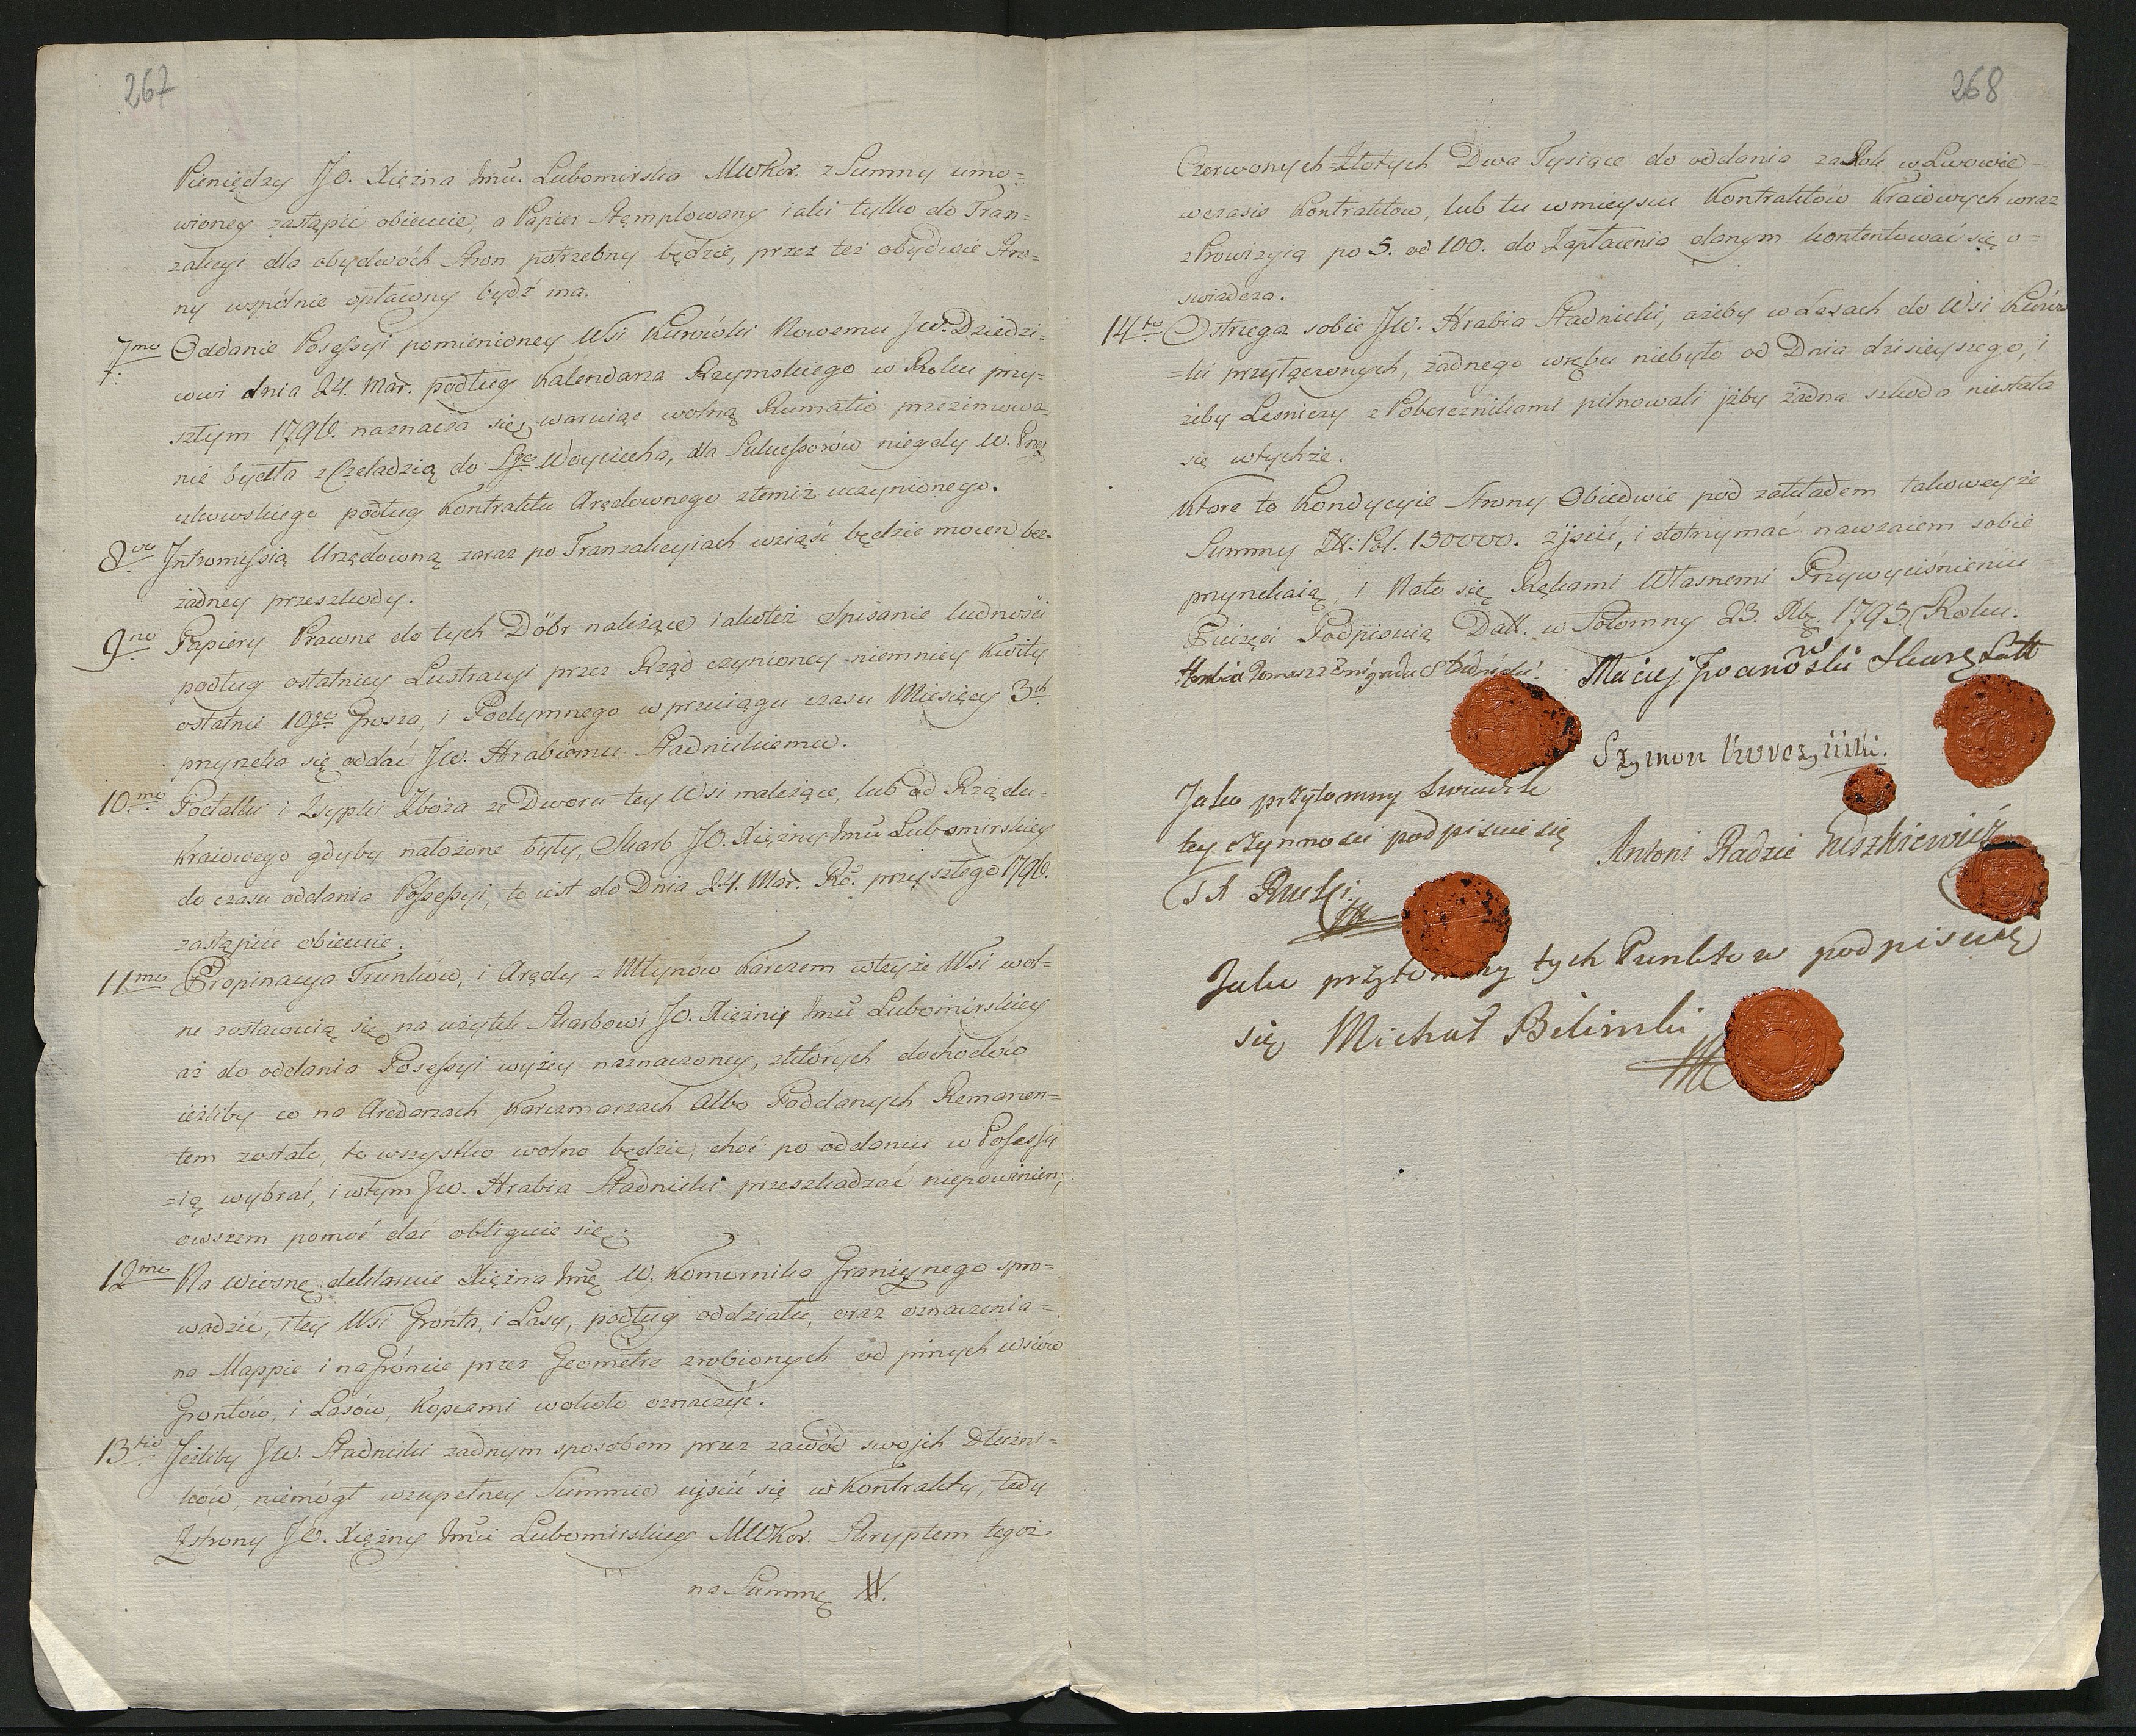 267
Pieniędzy JO. Xiężna Jmć. Lubomirska MWKor. z Summy umo=
wioney zastąpić obiecuie, a Papier Stęmplowany iaki tylko do Tran=
zakcyi dla obydwóch Stron potrzebny będzie, przez też obydwie Stro=
ny wspólnie opłacony bydź ma.
7mo Oddanie Possessyi pomienioney Wsi Kurówki Nowemu JW. Dziedzi=
cowi dnia 24. Mar. podług Kalendarza Rzymskiego w Roku przy=
szłym 1796. naznacza się, waruiąc wolną Rumatio przezimowa=
nie bydła z Czeladzią do Sgo Woyciecha, dla Sukcessorów niegdy W.
podług Kontraktu Arędownego z temiż uczynionego.
8vo Intromissią Urzędowną zaraz po Tranzakcyiach wziąść będzie mocen bez
żadney przeszkody.
9no Papiery Prawne do tych Dóbr należące iakoteż Spisanie ludności
podług ostatniey Lustracyi przez Rząd czynioney niemniey Kwity
ostatnie 10go Grosza, i Podymnego w przeciągu czasu Miesięcy 3ch
przyrzeka się oddać JW. Hrabiemu Stadnickiemu.
10mo Podatki i Zsypki Zboża ze Dworu tey Wsi należące, lub od Rządu
Kraiowego gdyby nałożone były, Skarb JO. Xiężny Jmć Lubomirskiey
do czasu oddania Possessyi, to iest do Dnia 24. Mar. Ro. przyszłego 1796.
zastąpić obiecuie.
11mo Propinacya Trunków, i Arędy z Młynów Karczem wteyże Wsi wol=
ne zostawuią się na użytek Skarbowi JO. Xiężnie Jmć Lubomirskiey
aż do oddania Possessyi wyżey naznaczoney, z których dochodów
ieżliby co na Arędarzach Karczmarzach Albo Poddanych Remanen=
tem zostało, to wszystko wolno będzie, choć po oddaniu w Possessy
=ią wybrać, i wtym JW. Hrabia Stadnicki przeszkadzać niepowinien,
owszem pomoc dać obliguie się.
12mo Na wiosnę deklaruie Xiężna Jmć W. Komornika Granicznego spro=
wadzić, i tey Wsi Gronta, i Lasy, podług oddziału, oraz oznaczenia=
na Mappie i na Gróncie przez Geometrę zrobionych od jnnych wsiów
Grontów, i Lasów, Kopcami wokoło oznaczyć.
13tio Jeżliby JW. Stadnicki żadnym sposobem przez zawód swojch Dłużni=
ków, niemógł wzupełney Summie ujścić się w Kontrakty, tedy
Zstrony JO. Xiężny Jmć Lubomirskiey MWKor. Skryptem tegoż
na Summę #.
268
Czerwonych=Złotych Dwa Tysiące do oddania za Rok w Lwowie
wczasie Kontraktow, lub tu wmieyscu Kontraktów Kraiowych wraz
z Prowizyią po 5. od 100. do Zapłacenia danym kontentować się o=
swiadcza.
14to Ostrzega sobie JW. Hrabia Stadnicki, ażeby w Lasach do Wsi Kurów
=ki przyłączonych, żadnego wrębu niebyło od Dnia dzisieyszego, i
żeby Lesniczy z Pobereznikami pilnowali jżby żadna szkoda niestała
się wtychże.
Ktore to Kondycyie Strony Obiedwie pod zakładem takoweyże
Summy Zł. Pol. 150000. zjścić, i dotrzymać nawzaiem sobie
przyrzekaią, i Nato się Rękami Własnemi Przywyciśnieniu
Pieczęci Podpisuią Datt. w Połonny 23. 1795. Roku.
Hrabia Tomasz z Żmigrodu Stadnicki.
Maciej Jwanowski
Szymon
Jako przytomny Swiadek
tey czynnosci podpisuie się
Antoni Radzie
Jako przytomny tych Punktow podpisuię
się Michał Biliński